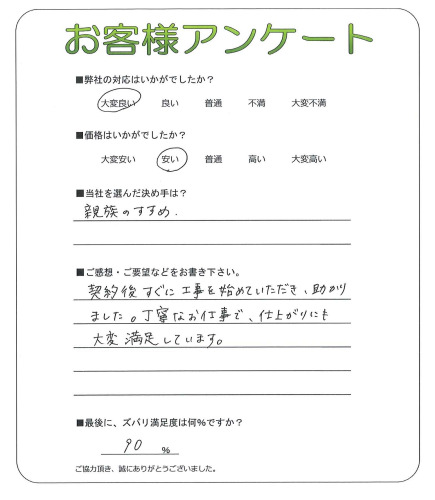 お客様アンケート
■弊社の対応はいかがでしたか?
大変良い 良い 普通 不満 大変不満
■価格はいかがでしたか?
大変安い 安い 普通 高い 大変高い
■当社を選んだ決め手は?
親族のすすめ.
■ご感想・ご要望などをお書き下さい。
契約後すぐに工事を始めていただき、助かり
ました。丁寧なお仕事で、仕上がりにも
大変満足しています。
■最後に、ズバリ満足度は何%ですか?
90 %
ご協力頂き、誠にありがとうございました。